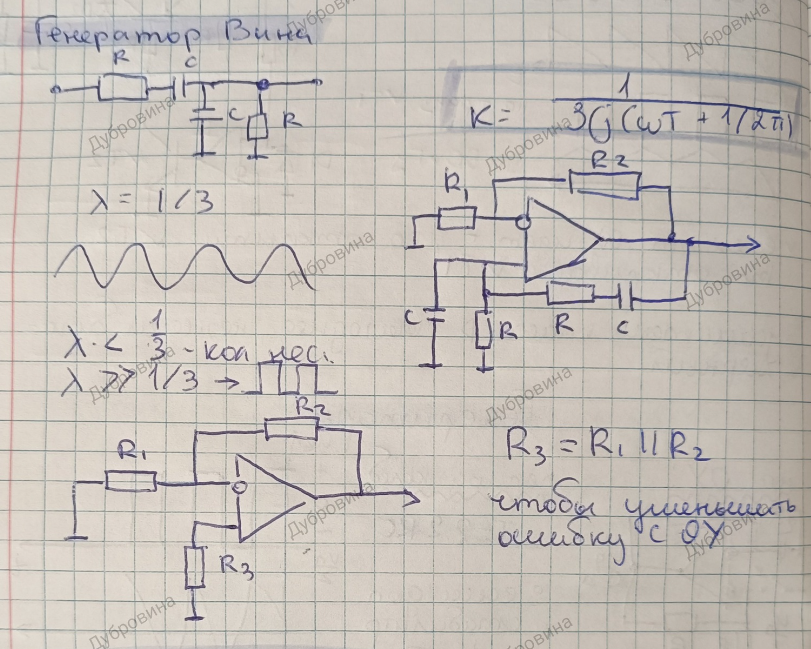 Генератор Вина
R C
C R
K = 1 / 3(j(ωT + 1/2π)
λ = 1/3
R2
R1
C R R C
λ < 1/3 - кол нес.
λ >> 1/3 →
R2
R1
R3
R3 = R1 || R2
чтобы уменьшать
ошибку с ОУ
Дубровина
Дубровина
Дубровина
Дубровина
Дубровина
Дубровина
Дубровина
Дубровина
Дубровина
Дубровина
Дубровина
Дубровина